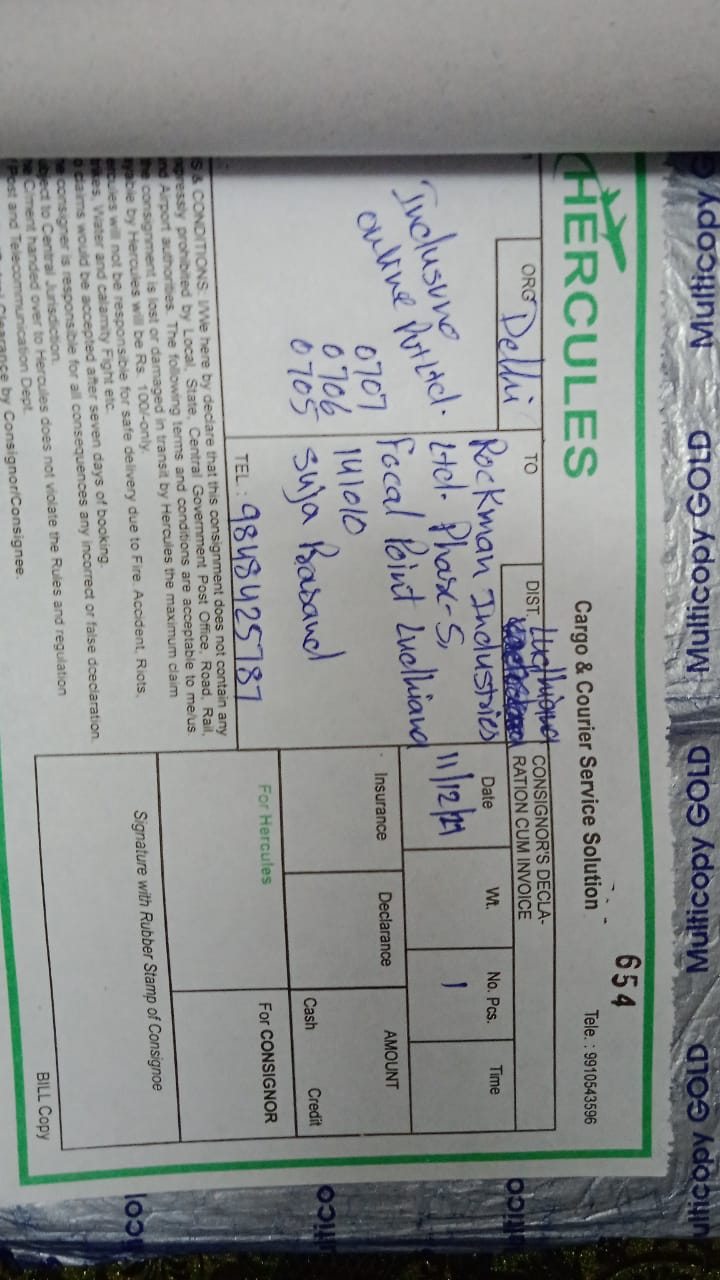 654
HERCULES
Cargo & Courier Service Solution
Tele. : 9910543596
ORG Delhi
TO
DIST. Ludhiana
CONSIGNOR'S DECLA-
RATION CUM INVOICE
Inclusive
online Pvt Ltd.
0707
0706
0705
Rockman Industries
Ltd. Phase-5,
Focal Point Ludhiana
141010
Suja Prasand
TEL : 9848425787
Date
Wt.
No. Pcs.
Time
11/12/21
1
Insurance
Declarance
AMOUNT
Cash
Credit
For Hercules
For CONSIGNOR
Signature with Rubber Stamp of Consignoe
BILL Copy
S & CONDITIONS: I/We here by declare that this consignment does not contain any
pressly prohibited by Local, State, Central Government Post Office, Road, Rail,
nd Airport authorities. The following terms and conditions are acceptable to me/us.
the consignment is lost or damaged in transit by Hercules the maximum claim
yable by Hercules will be Rs. 100/-only.
ercules will not be responsible for safe delivery due to Fire. Accident, Riots,
trikes, Water and calamity Fight etc.
o claims would be accepted after seven days of booking.
he consigner is responsible for all consequences any incorrect or false dceclaration.
ubject to Central Jurisdiction.
he Ciment handed over to Hercules does not violate the Rules and regulation
f Post and Telecommunication Dept.
Clearance by Consignor/Consignee.
Multicopy GOLD Multicopy GOLD Multicopy GOLD